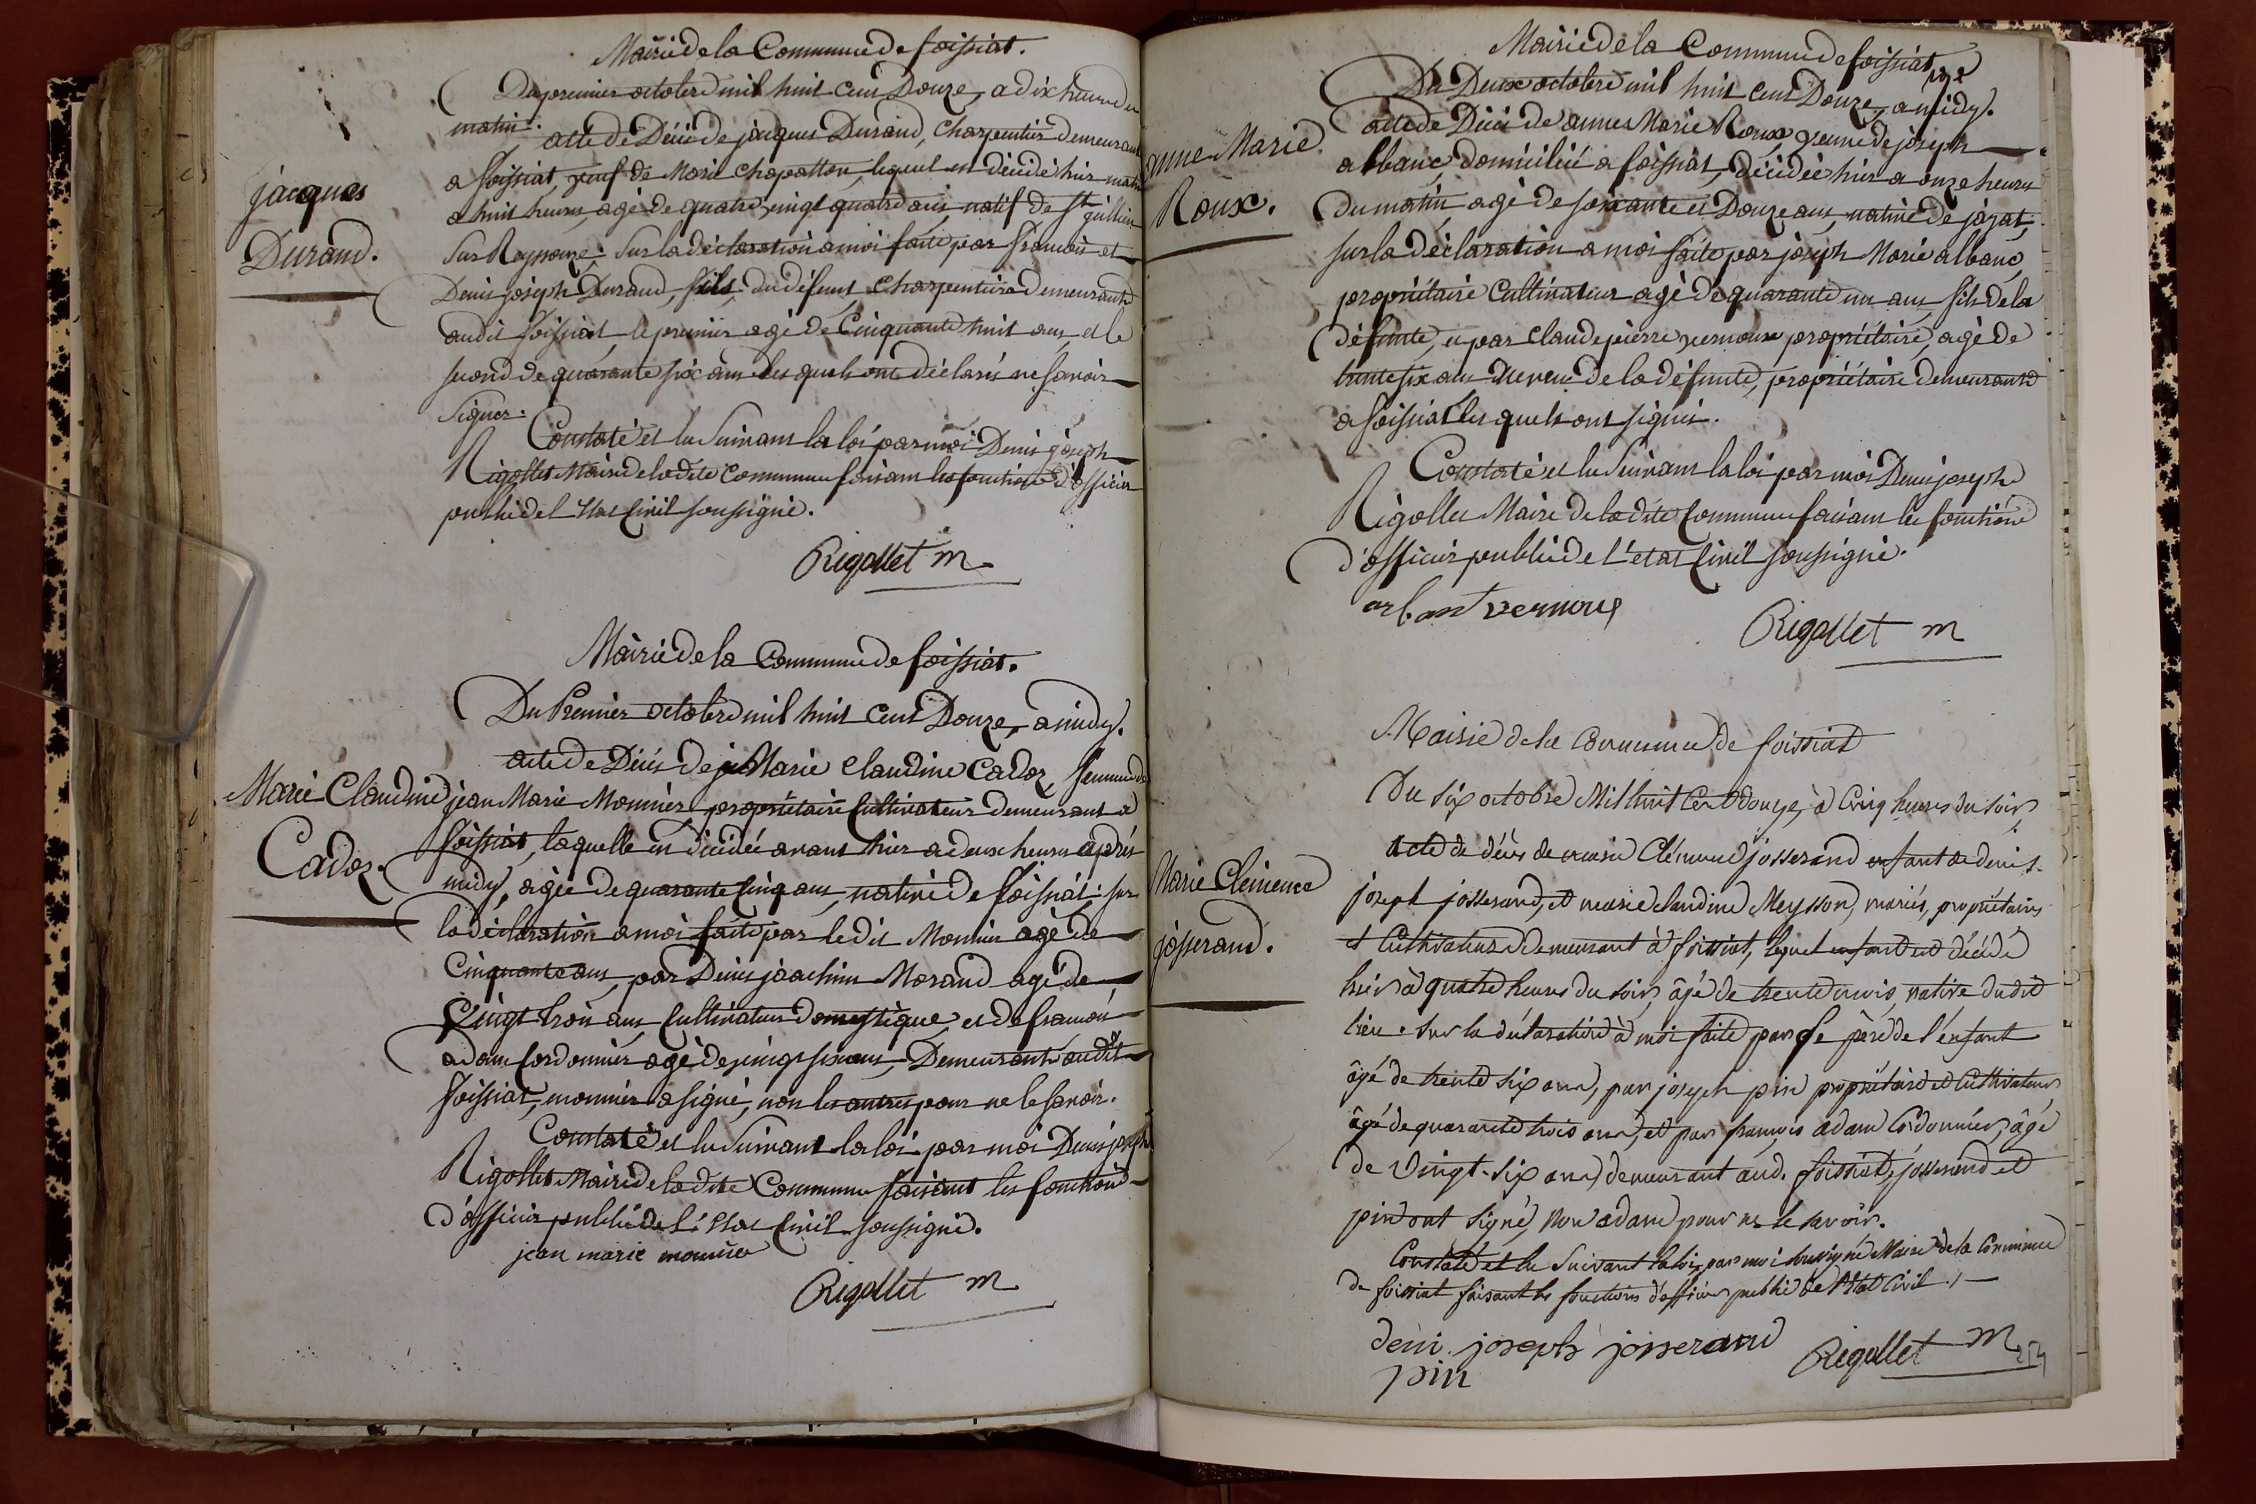 Mairie de la Commune de foissiat.
Du premier octobre mil huit cent Douze, a dix heures du
matin.
acte de Décè de jacques Durand, charpentier demeurant
a foissiat, veuf de Marie chapatton, lequel est décédé hier matin
a huit heures, agé de quatre vingt quatre ans, natif de St jullien
sur Reyssouze; sur la déclaration a moi faite par francois et
Denis joseph Durand, fils du défunt charpentiers demeurants
audit foissiat, le premier agé de cinquante huit ans, et le
second de quarante six ans les quels ont déclarés ne savoir
signer.
Constaté et lu suivant la loi par moi Denis joseph
Rigollet Maire de la dite Commune faisant les fonctions d'officier
public de l'Etat Civil soussigné.
Rigollet m
jacques
Durand.
Mairie de la Commune de foissiat.
Du Premier octobre mil huit cent Douze, a midy.
acte de Décès de Marie Claudine Cadoz femme de
jean Marie Monnier propriétaire Cultivateur demeurant a
foissiat, laquelle est décédée avant hier a deux heures après
midy, agée de quarante cinq ans, native de foissiat: sur
la déclaration a moi faite par le dit Monnier agé de
cinquante ans, par Denis joachim Morand agé de
vingt trois ans, Cultivateur domestique, et de francois
adam Cordonnier agé de vingt six ans, Demeurants audit
foissiat, monnier a signé, non les autres pour ne le savoir.
Constaté et lu suivant la loi par moi Denis joseph
Rigollet Maire de la dite Commune faisant les fonctions
d'officier public de l'Etat Civil soussigné.
jean marie monnier
Rigollet m
Marie Claudine
Cadoz.
Mairie de la Commune de foissiat
Du Deux octobre mil huit cent Douze, a midy.
acte de Décè de anne Marie Roux, veuve de joseph
albanc, domiciliée a foissiat, décédée hier a onze heures
du matin agé de soixante et Douze ans, native de jayat,
sur la déclaration a moi faite par joseph Marie albanc,
propriétaire Cultivateur agé de quarante un ans, fils de la
défunte, et par Claude pierre vernoux propriétaire, agé de
trente six ans Neveu de la défunte, propriétaire demeurants
a foissiat les quels ont signés.
Constaté et lu suivant la loi par moi Denis joseph
Rigollet Maire de la dite Commune faisant les fonctions
d'officier public de l'état Civil soussigné.
vernoux
Rigollet m
anne Marie
Roux.
Mairie de la Commune de foissiat
Du six octobre Mil huit Cent douze, à Cinq heures du soir,
Acte de décès de marie Clémence josserand enfant de denis-
joseph josserand, et marie claudine Meysson, mariés, propriétaires
et Cultivateurs demeurant à foissiat, lequel enfant est décédé
hier à quatre heures du soir, âgé de trente mois, native dudit
lieu. sur la déclaration à moi faite par le père de l'enfant
âgé de trente six ans, par joseph pin propriétaire et Cultivateur
âgé de quarante trois ans, et par françois adam Cordonnier, âgé
de vingt-six ans, demeurant aud. foissiat, josserand et
pin ont signé, non adam pour ne le savoir.
Constaté et lu suivant la loi, par moi soussigné Maire de la Commune
de foissiat faisant les fonctions d'officier public de l'Etat Civil./
deni joseph josserand
pin
Rigollet m
Marie Clémence
josserand.